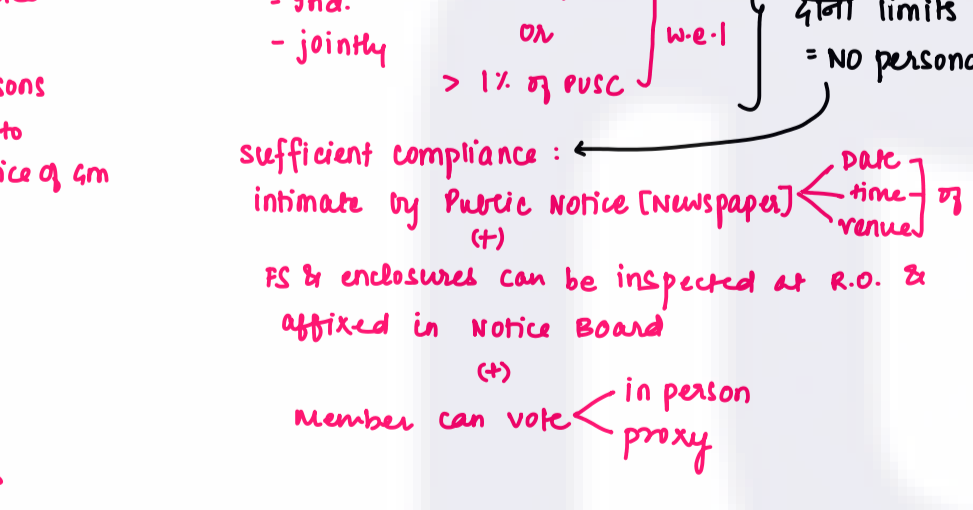 - Ind.
- jointly
or
> 1% of PUSC
w.e.l
दोनो limits
= NO persona
sons
to
ice of GM
sufficient compliance :
intimate by Public Notice [Newspaper]
Date
time
venue
of
(+)
FS & enclosures can be inspected at R.O. &
affixed in Notice Board
(+)
Member can vote
in person
proxy